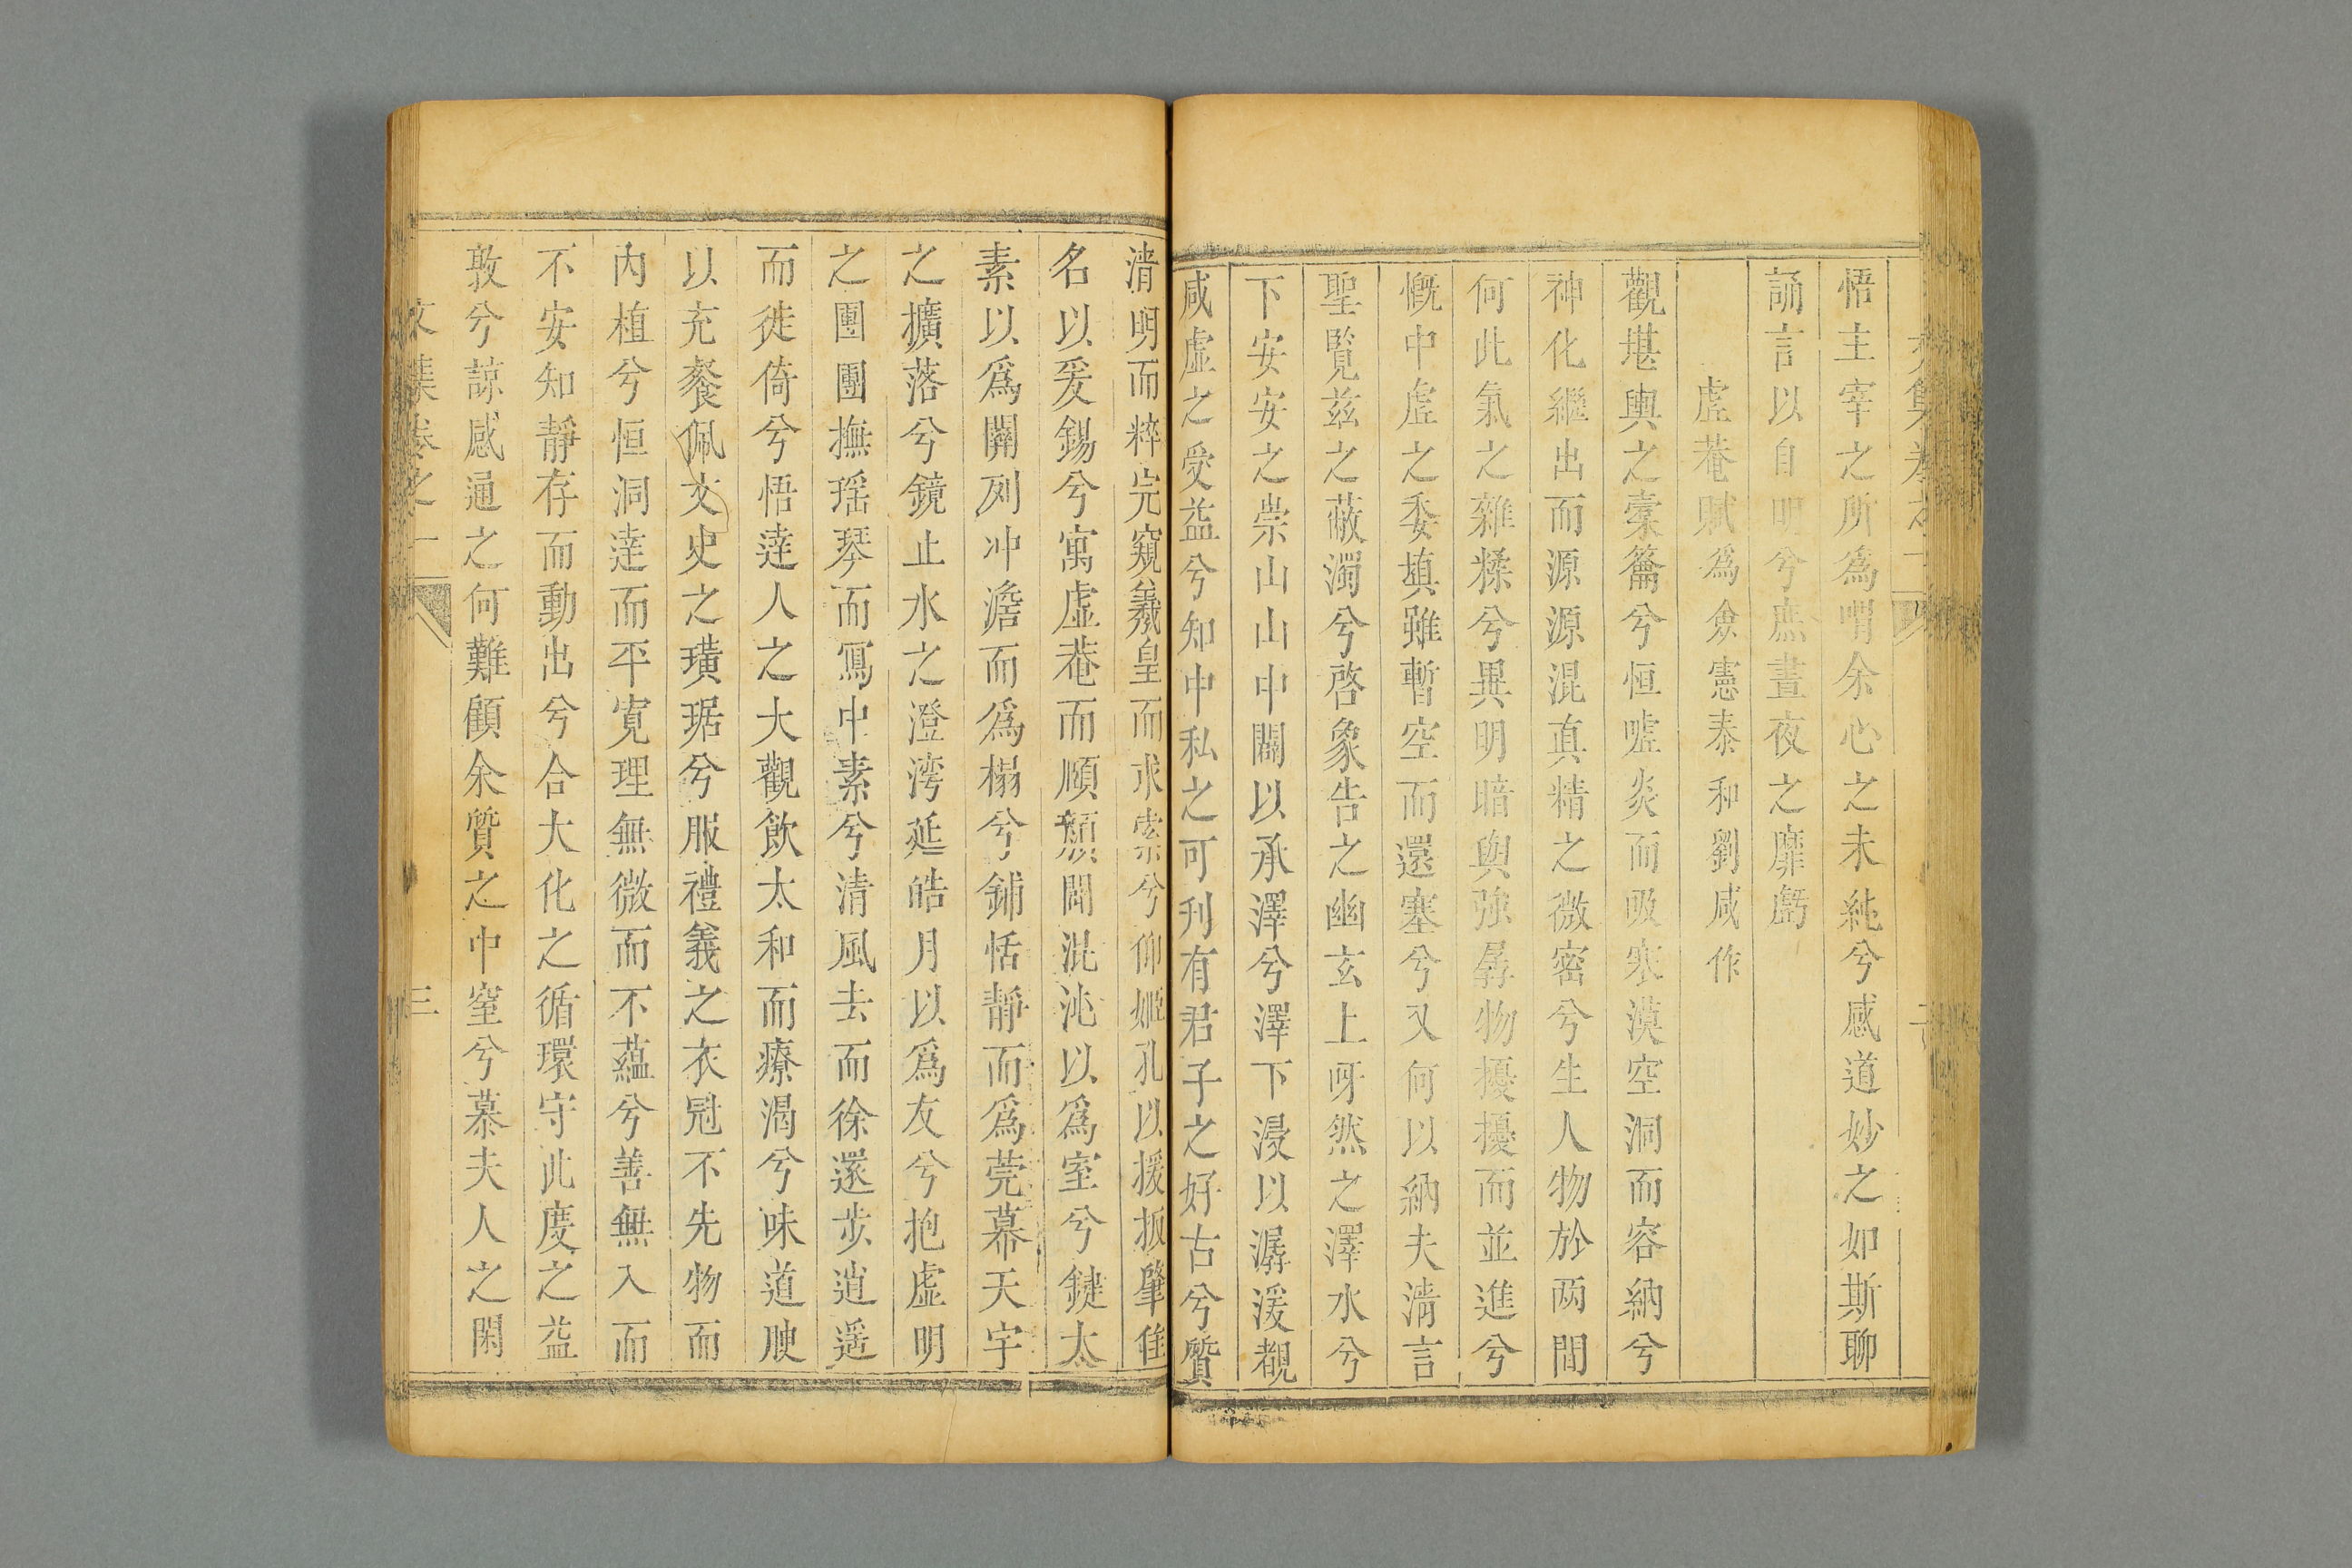 悟主宰之所為喟余心之未純兮感道妙之如斯聊
誦言以自明兮庶晝夜之靡虧
虛菴賦為僉憲泰和劉咸作
觀堪輿之橐籥兮恒噓炎而吸寒漠空洞而容納兮
神化繼出而源源混真精之微密兮生人物於两間
何此氣之雜糅兮異明暗與強孱物擾擾而並進兮
慨中虛之委填雖暫空而還塞兮又何以納夫清言
聖覧兹之蔽濁兮啓象告之幽玄上呀然之澤水兮
下安安之崇山山中闢以承澤兮澤下浸以潺湲覩
咸虛之受益兮知中私之可刋有君子之好古兮質
清明而粹完窺羲皇而求索兮仰姬孔以援扳肇佳
名以爰錫兮寓虛菴而順頽闢混沌以為室兮鍵太
素以為關列冲澹而為榻兮鋪恬靜而為莞幕天宇
之擴落兮鏡止水之澄湾延皓月以為友兮抱虛明
之團團撫瑶琴而寫中素兮清風去而徐還步逍遥
而徙倚兮悟逹人之大觀飲太和而療渴兮味道腴
以充餐佩文史之璜琚兮服禮義之衣冠不先物而
內植兮恒洞逹而平寛理無微而不蘊兮善無入而
不安知靜存而動出兮合大化之循環守此度之益
敦兮諒感通之何難顧余質之中窒兮慕夫人之閑
文集卷之一
三